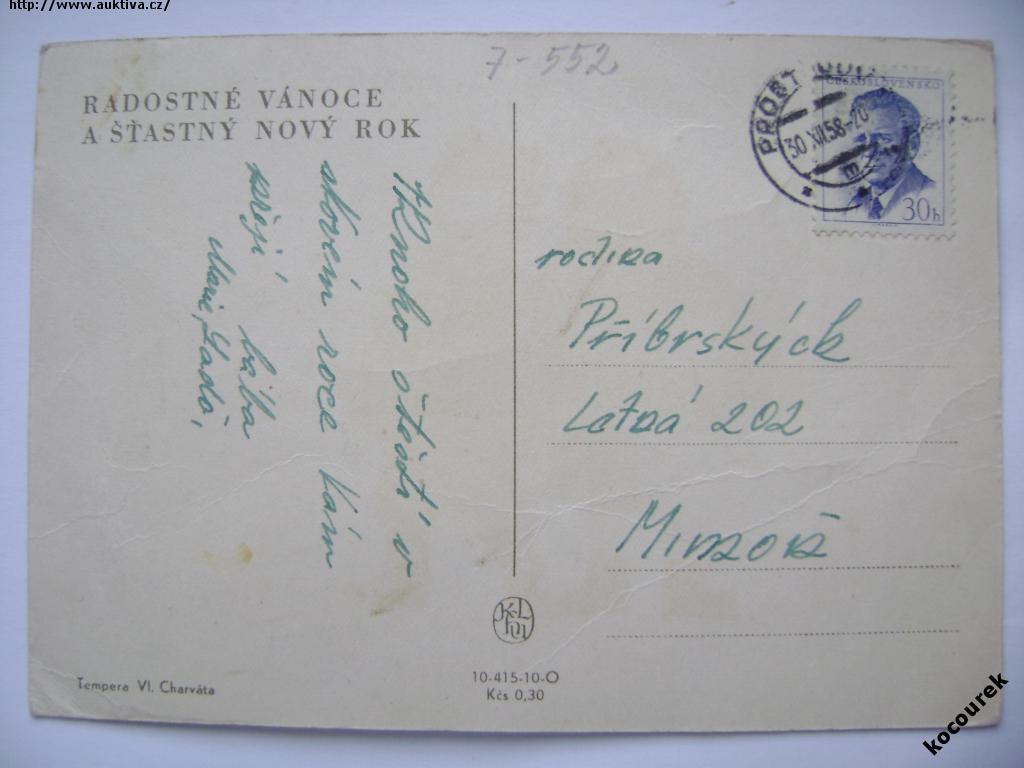 http://www.auktiva.cz/
7-552
RADOSTNÉ VÁNOCE
A ŠŤASTNÝ NOVÝ ROK
Mnoho štěstí v
novém roce Vám
přejí bába
Marie,
rodina
Příbrských
Letná 202
Mimoň
PROSTĚJOV
30.XII.58-20
ČESKOSLOVENSKO
30h
10-415-10-O
Kčs 0,30
Tempera Vl. Charváta
kocourek